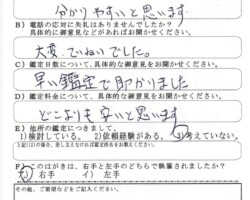 分かりやすいと思います
B) 電話の応対に失礼はありませんでしたか?
具体的に御意見などがあればお聞かせください。
大変ていねいでした。
C) 鑑定日数について、具体的な御意見をお聞かせください。
早い鑑定で助かりました
D) 鑑定料金について、具体的な御意見をお聞かせください。
どこよりも安いと思います
E) 他所の鑑定につきまして。
1)検討している。 2)依頼経験がある。 3)考えていない。
F) このはがきは、右手と左手のどちらで執筆されましたか?
ア) 右手 イ) 左手
その他、ご要望などをご記入ください。